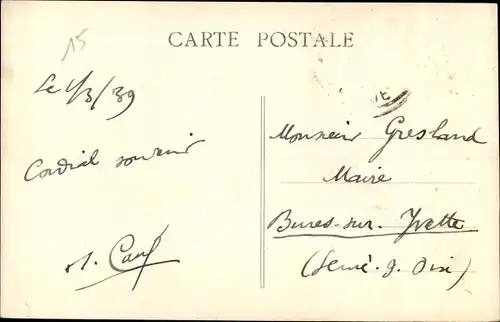 15
CARTE POSTALE
Le 1/3/39
Cordial souvenir
Monsieur Gresland
Maire
Bures-sur-Yvette
(Seine-&-Oise)